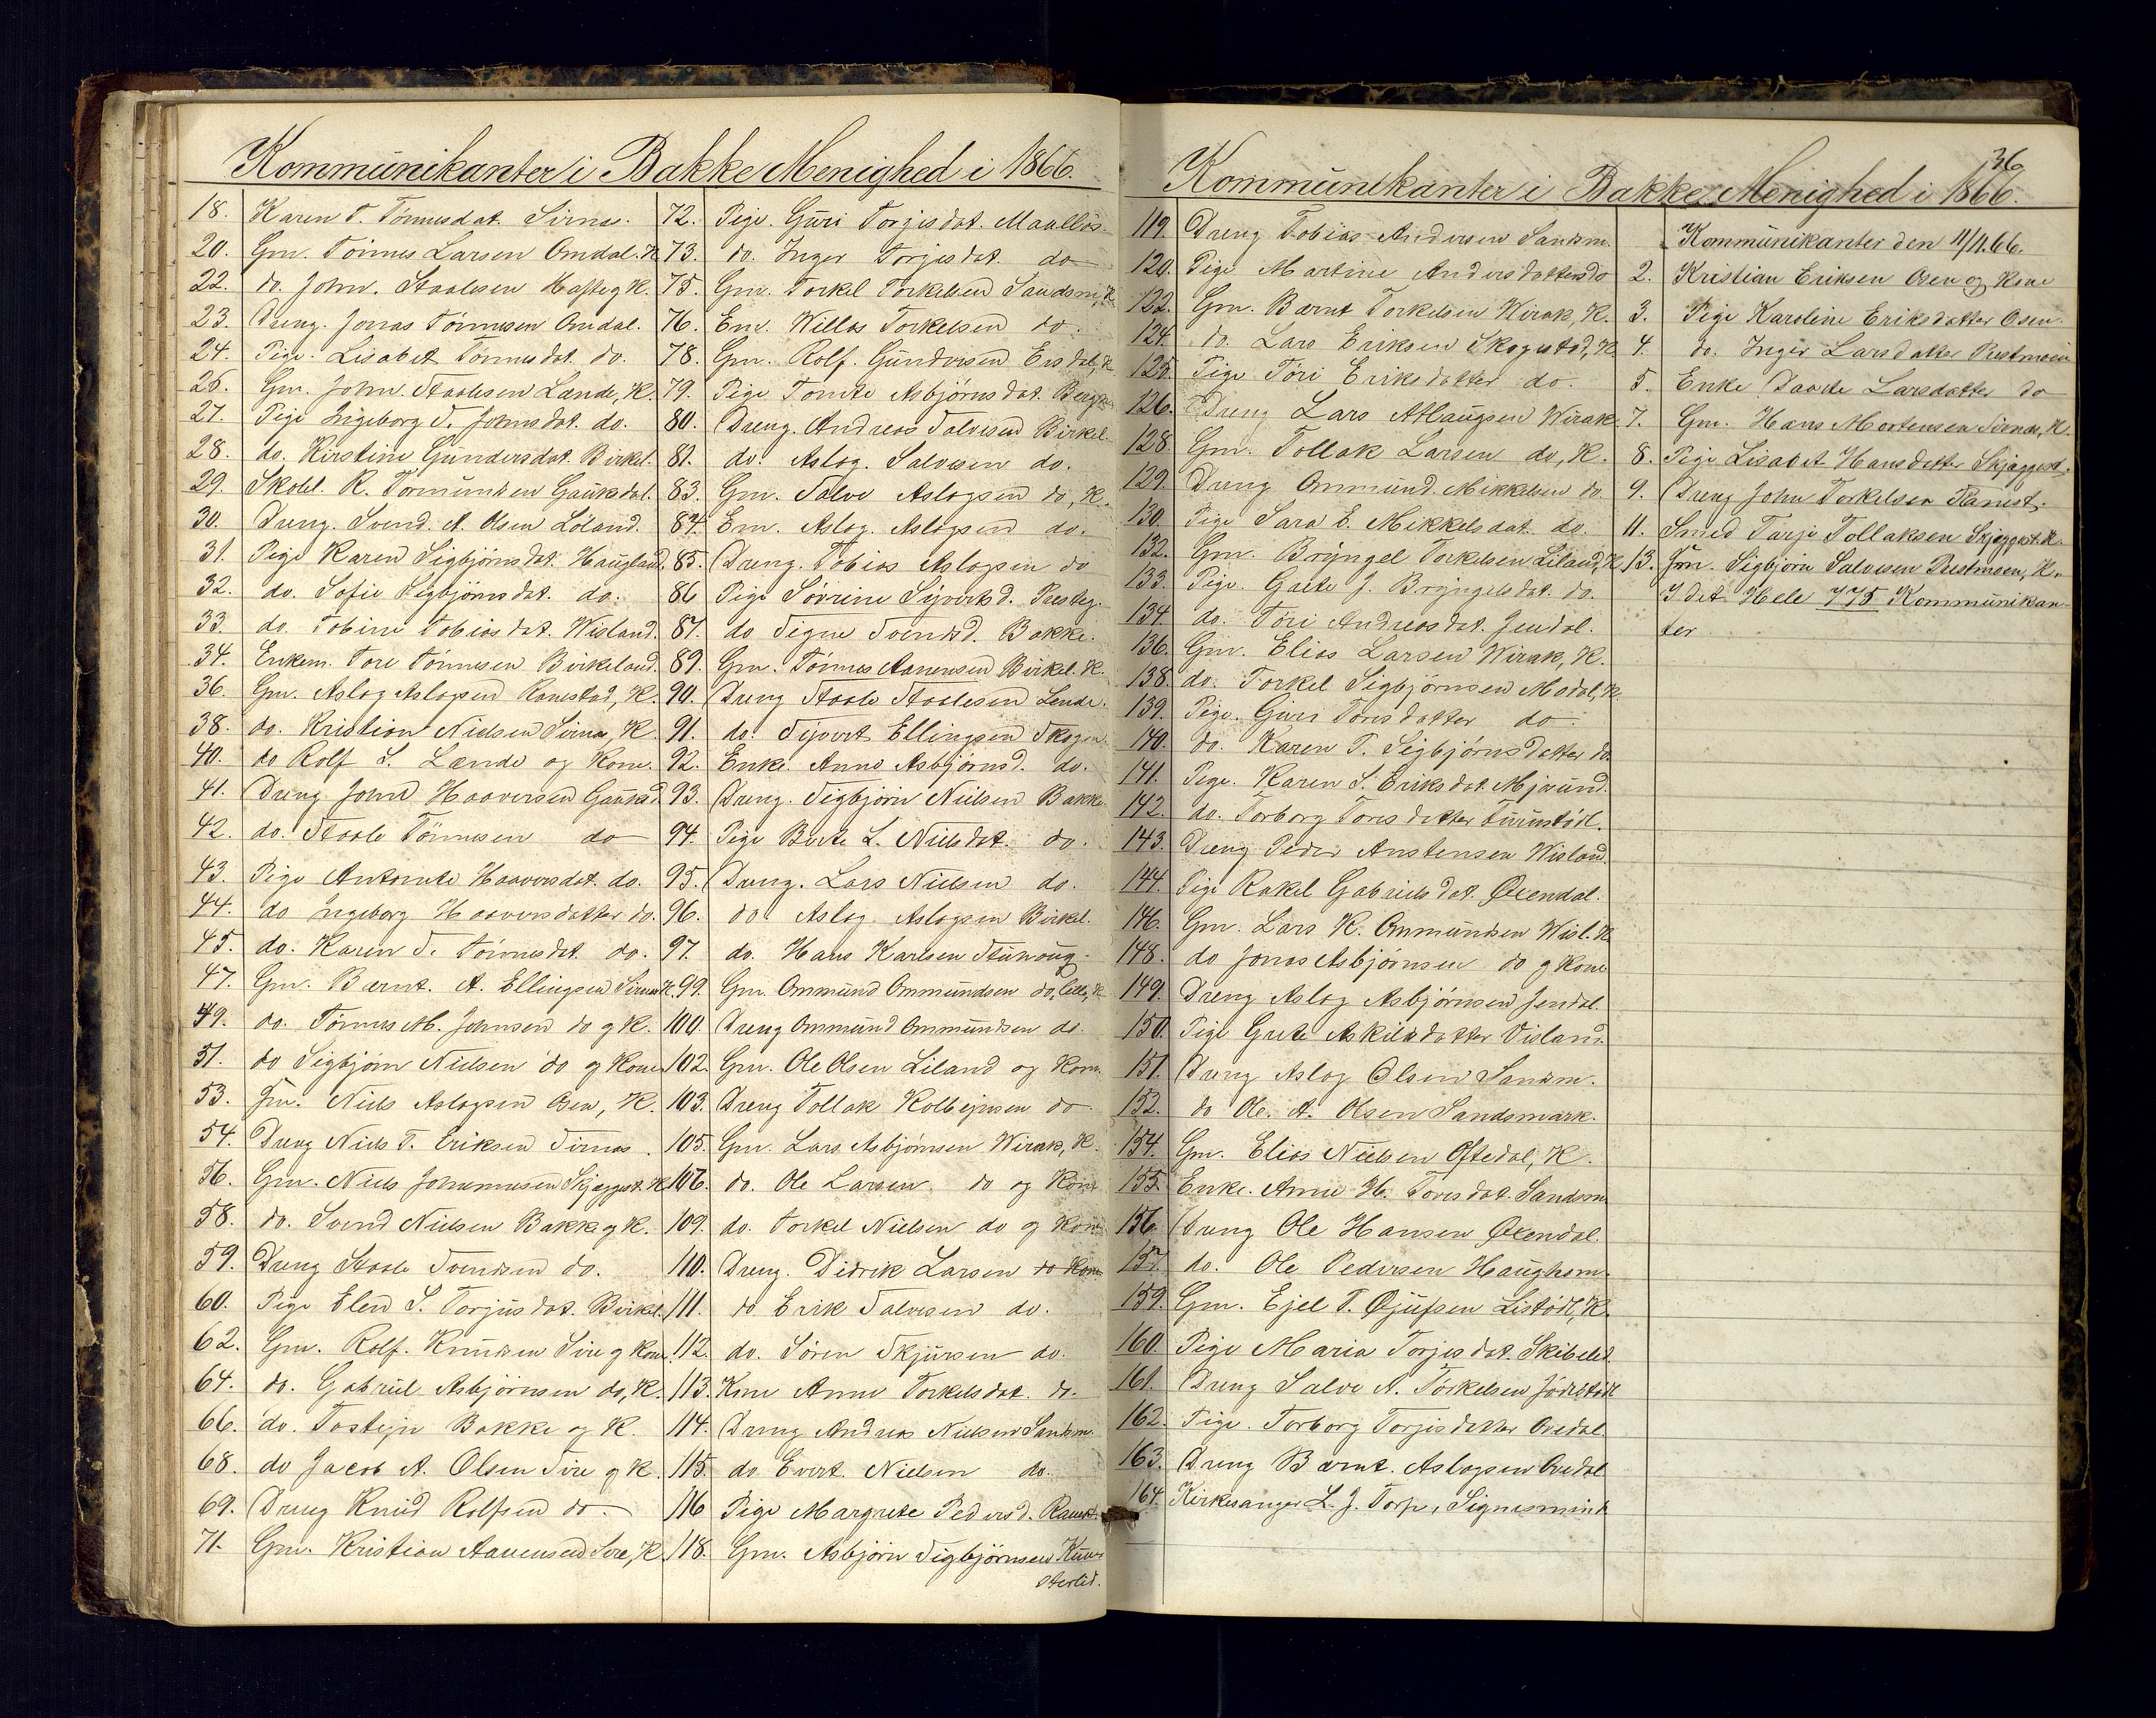 Kommunikanter i Bakke Menighed i 1866.
18. Karen T. Tönnesdat. Sirna.
20. Gm. Tönnes Larsen Omdal. K
22. do. John. Staalesen Hafte g K.
23. Dreng. Jonas Tönnesen Omdal.
24. Pige. Lisabet Tönnesdat. do.
26. Gm. John Staalesen Lande, K.
27. Pige Ingeborg S. Johnsdat. do.
28. do. Kirstine Gundersdat. Birkel.
29. Skolel. R. Tormundsen Gauksdal.
30. Dreng. Svend. A. Olsen Löland.
31. Pige Karen Sigbjörnsdat. Haugland.
32. do. Sofie Sigbjörnsdat. do.
33. do. Tobine Tobiasdat. Wisland.
34. Enkem. Tore Tönnesen Birkeland.
36. Gm. Aslag Aslagsen Ranestad, K.
38. do. Kristian Nielsen Sirna, K
40. do Rolf S. Lænde og Kone.
41. Dreng John Haaversen Gauksd.
42. do. Staale Tönnesen do
43. Pige Antonete Haaversdat. do.
44. do Ingeborg Haaversdatter do.
45. do. Karen S. Tönnesdat. do.
47. Gm. Bærnt. A. Ellingsen Sirna K.
49. do. Tönnes M. Johnsen do g K.
51. do Sigbjörn Nielsen do g Kone
53. Gm. Niels Aslagsen Osen, K.
54. Dreng Niels T. Eriksen Sirnas.
56. Gm. Niels Johannesen Skjeggest. K
58. do. Svend Nielsen Bakke g K.
59. Dreng Staale Svendsen do.
60. Pige Elen S. Torjusdat. Birkel.
62. Gm. Rolf. Knudsen Sire g Kone.
64. do. Gabriel Asbjörnsen do, K.
66. do. Tostejn Bakke og K.
68. do Jacob A. Olsen Sire g K.
69. Dreng Knud Rolfsen do.
71. Gm. Kristian Aanensen Sire, K.
72. Pige. Guri Torjisdat. Maallös
73. do. Inger Torjisdat. do
75. Gm. Torkel Torkelsen Sandsm, K
76. Em. Willas Torkelsen do.
78. Gm. Rolf. Gundersen Eisdal, K
79. Pige Tomte Asbjörnsdat. Berg
80. Dreng. Andreas Salvesen Birkel.
81. do. Aslag. Salvesen do.
83. Gm. Salve Aslagsen do, K.
84. Em. Aslag. Aslagsen do.
85. Dreng. Tobias Aslagsen do
86 Pige Sörine Sijvertsd. Presteg.
87. do Signe Svendsd. Bakke.
89. Gm. Tönnes Aanensen Birkel. K.
90. Dreng Staale Staalesen Lende.
91. do. Sijvert Ellingsen Skogen
92. Enke. Anne Asbjörnsd. do.
93. Dreng. Sigbjörn Nielsen Bakke.
94. Pige Berte L. Nielsdat. do.
95. Dreng. Lars Nielsen do.
96. do. Aslag. Aslagsen Birkel.
97. do. Hans Karlsen Stunoug.
99. Gm. Ommund Ommundsen do, lille, K
100. Dreng Ommund Ommundsen do.
102. Gm. Ole Olsen Liland og Kone.
103. Dreng Tollak Kolbejnsen do.
105. Gm. Lars Asbjörnsen Wirak, K.
107. do. Ole Larsen. do og Kone
109. do. Torkel Nielsen do g Kone
110. Dreng. Didrik Larsen do Kone
111. do Erik Salvesen do.
112. do. Sören Skjursen do.
113. Kone Anne Torkelsdat. do.
114. Dreng Andreas Nielsen Sandsm.
115. do. Evert. Nielsen do.
116 Pige Margrete Pedersd. Ranest.
118. Gm. Asbjörn Sigbjörnsen Kune
Störlid.
36
Kommunikanter i Bakke Menighed i 1866.
119. Dreng Tobias Andersen Sandsm.
120. Pige Martine Andersdatter do
122. Gm. Bærnt Torkelsen Wirak, K.
124. do. Lars Eriksen Skogestad, K
125. Pige Töri Eriksdatter do.
126. Dreng Lars Atlaugsen Wirak.
128. Gm. Tollak Larsen do, K.
129. Dreng Ommund. Mikkelsen do.
130. Pige Sara E. Mikkelsdat. do.
132. Gm. Bryngel Torkelsen Liland, K
133. Pige. Gæte J. Bryngelsdat. do.
134. do. Töri Andreasdat. Jendal.
136. Gm. Elias Larsen Wirak, K.
138. do. Torkel Sigbjörnsen Modal, K
139. Pige. Guri Toresdatter do.
140. do. Karen T. Sigbjörnsdatter do.
141. Pige. Karen S. Eriksdat. Mjaund.
142. do. Torborg Toresdatter Tuunstödl.
143. Dreng Peder Anstensen Wisland.
144. Pige Rakel Gabrielsdat. Øxendal.
146. Gm. Lars K. Ommundsen Wisl. K
148. do Jonas Asbjörnsen do g Kone
149. Dreng Aslag Asbjörnsen Jendal.
150. Pige Grete Askildsdatter Visland.
151. Dreng Aslag Olsen Sandsm.
152. do Ole. A. Olsen Sandsmark.
154. Gm. Elias Nielsen Oftedal, K.
155. Enke. Anne H. Toresdat. Sandsm
156. Dreng Ole Hansen Øxendal.
157. do. Ole Pedersen Haughom.
159. Gm. Ejel T. Øjufsen Listödl, K.
160. Pige Maria Torjisdat. Skibeled.
161. Dreng Salve A. Törkelsen Jödestödl
162. Pige. Torborg Torjisdatter Ovedal
163. Dreng Bærnt. Aslagsen Ovedal
164. Kirkesanger L. J. Torp, Signesminde
Kommunikanter den 11/11. 66.
2. Kristian Eriksen Osen og Kone
3. Pige Karoline Eriksdatter Osen.
4. do. Inger Larsdatter Restmoen
5. Enke Daarte Larsdatter do
7. Gm. Hans Mortensen Sirnas, K.
8. Pige Lisabet Hansdatter Skjæggest.
9. Dreng John Torkelsen Ranest.
11. Smed Tarje Tollaksen Skjæggest. K.
13. Gm. Sigbjörn Salvesen Prestmoen, K.
I det Hele 775 Kommunikan-
ter